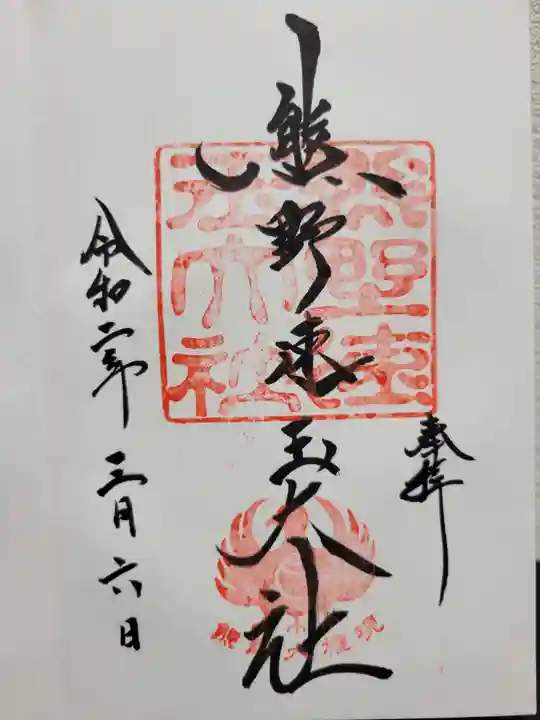 奉拝
熊野速玉大社
令和二年 三月六日
熊野速
玉大社
熊野大権現